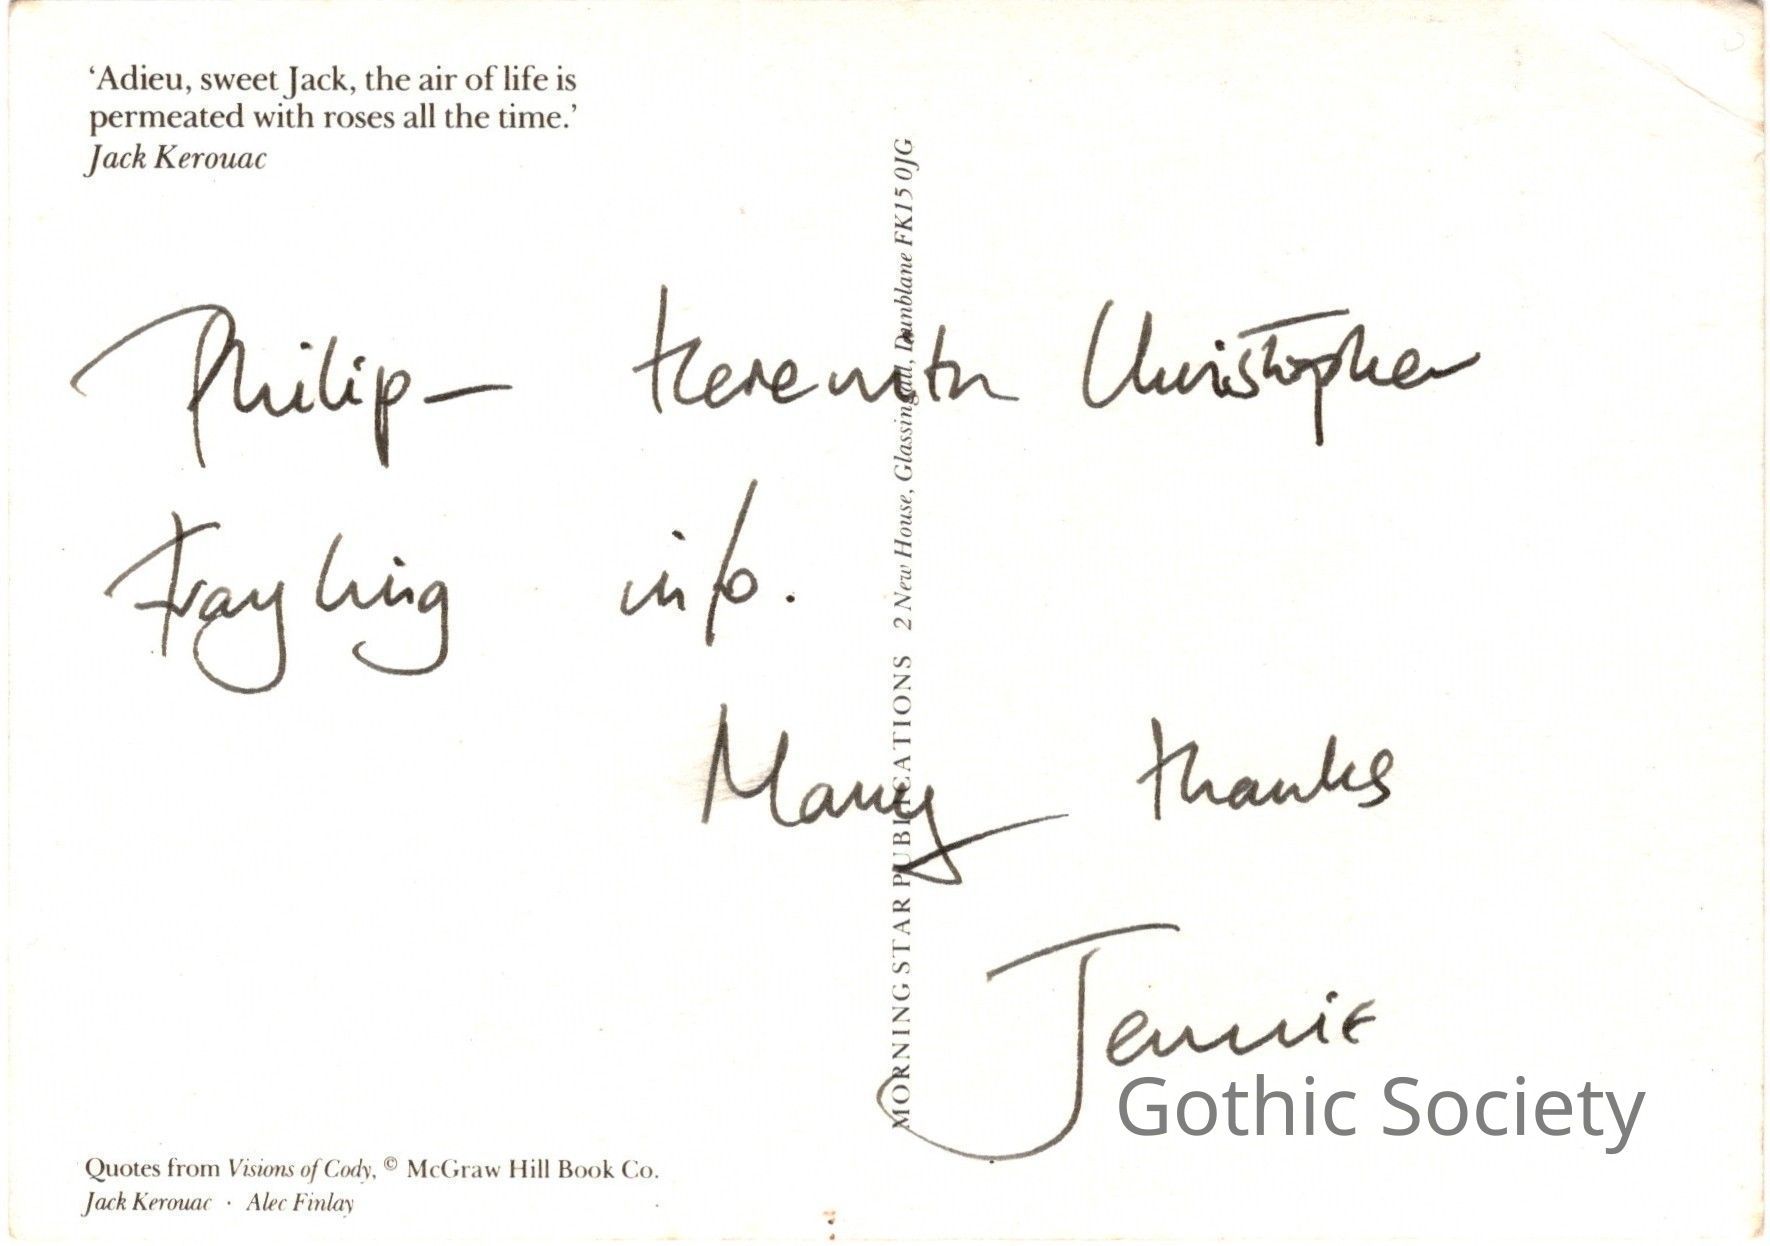 ‘Adieu, sweet Jack, the air of life is
permeated with roses all the time.’
Jack Kerouac
Philip – Herewith Christopher
Frayling info.
Many thanks
Jennie
Gothic Society
MORNING STAR PUBLICATIONS 2 New House, Glassingall, Dunblane FK15 0JG
Quotes from Visions of Cody, © McGraw Hill Book Co.
Jack Kerouac · Alec Finlay